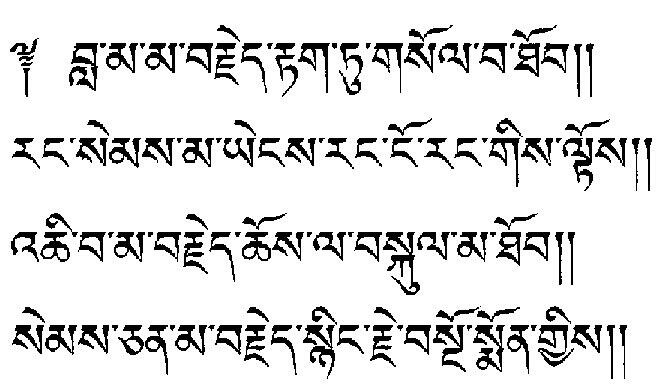 ༈ བླ་མ་མ་བརྗེད་རྟག་ཏུ་གསོལ་བ་ཐོབ།།
རང་སེམས་མ་ཡེངས་རང་ངོ་རང་གིས་ལྟོས།།
འཆི་བ་མ་བརྗེད་ཆོས་ལ་བསྐུལ་མ་ཐོབ།།
སེམས་ཅན་མ་བརྗེད་སྙིང་རྗེ་བསྔོ་སྨོན་གྱིས།།